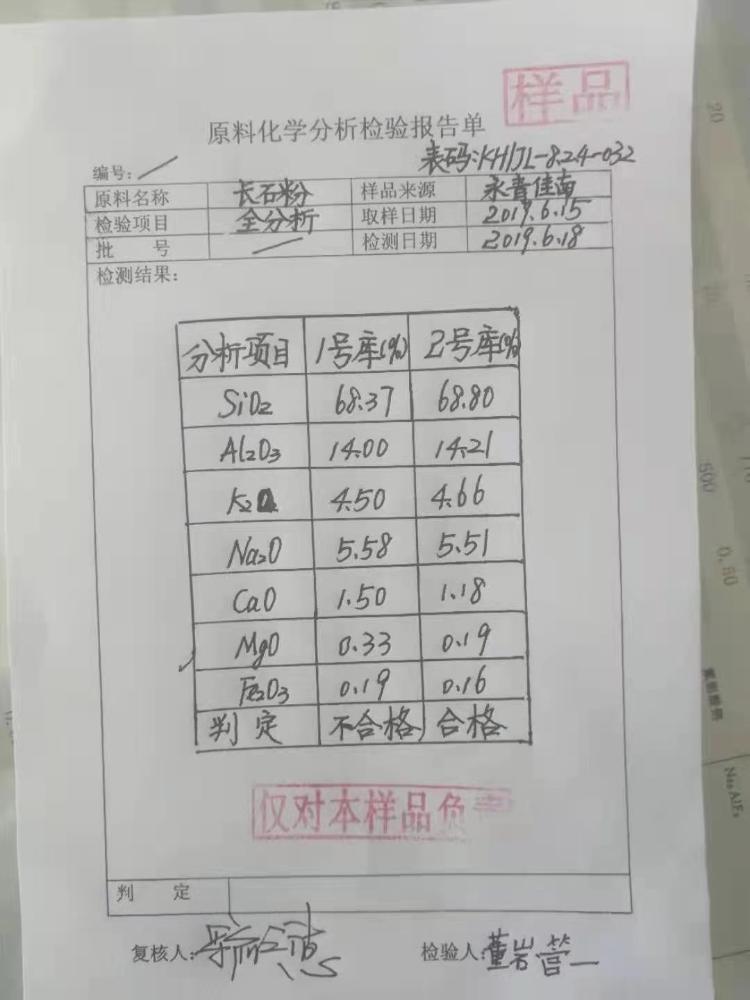 样品
原料化学分析检验报告单
表码:KH/JL-8.24-032
编号:
原料名称 长石粉 样品来源 永晋佳南
检验项目 全分析 取样日期 2019.6.15
批 号 检测日期 2019.6.18
检测结果:
分析项目 1号库(%) 2号库(%)
SiO2 68.37 68.80
Al2O3 14.00 14.21
K2O 4.50 4.66
Na2O 5.58 5.51
CaO 1.50 1.18
MgO 0.33 0.19
Fe2O3 0.19 0.16
判定 不合格 合格
仅对本样品负责
判 定
复核人:
检验人:董岩营
20
500
0.50